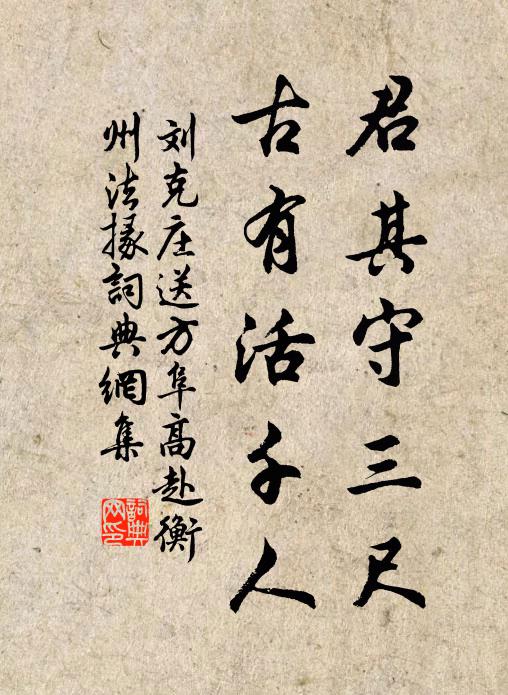 君其守三尺
古有活千人
刘克庄送方阜高赴衡
州法掾詞典網集
詞典
网印